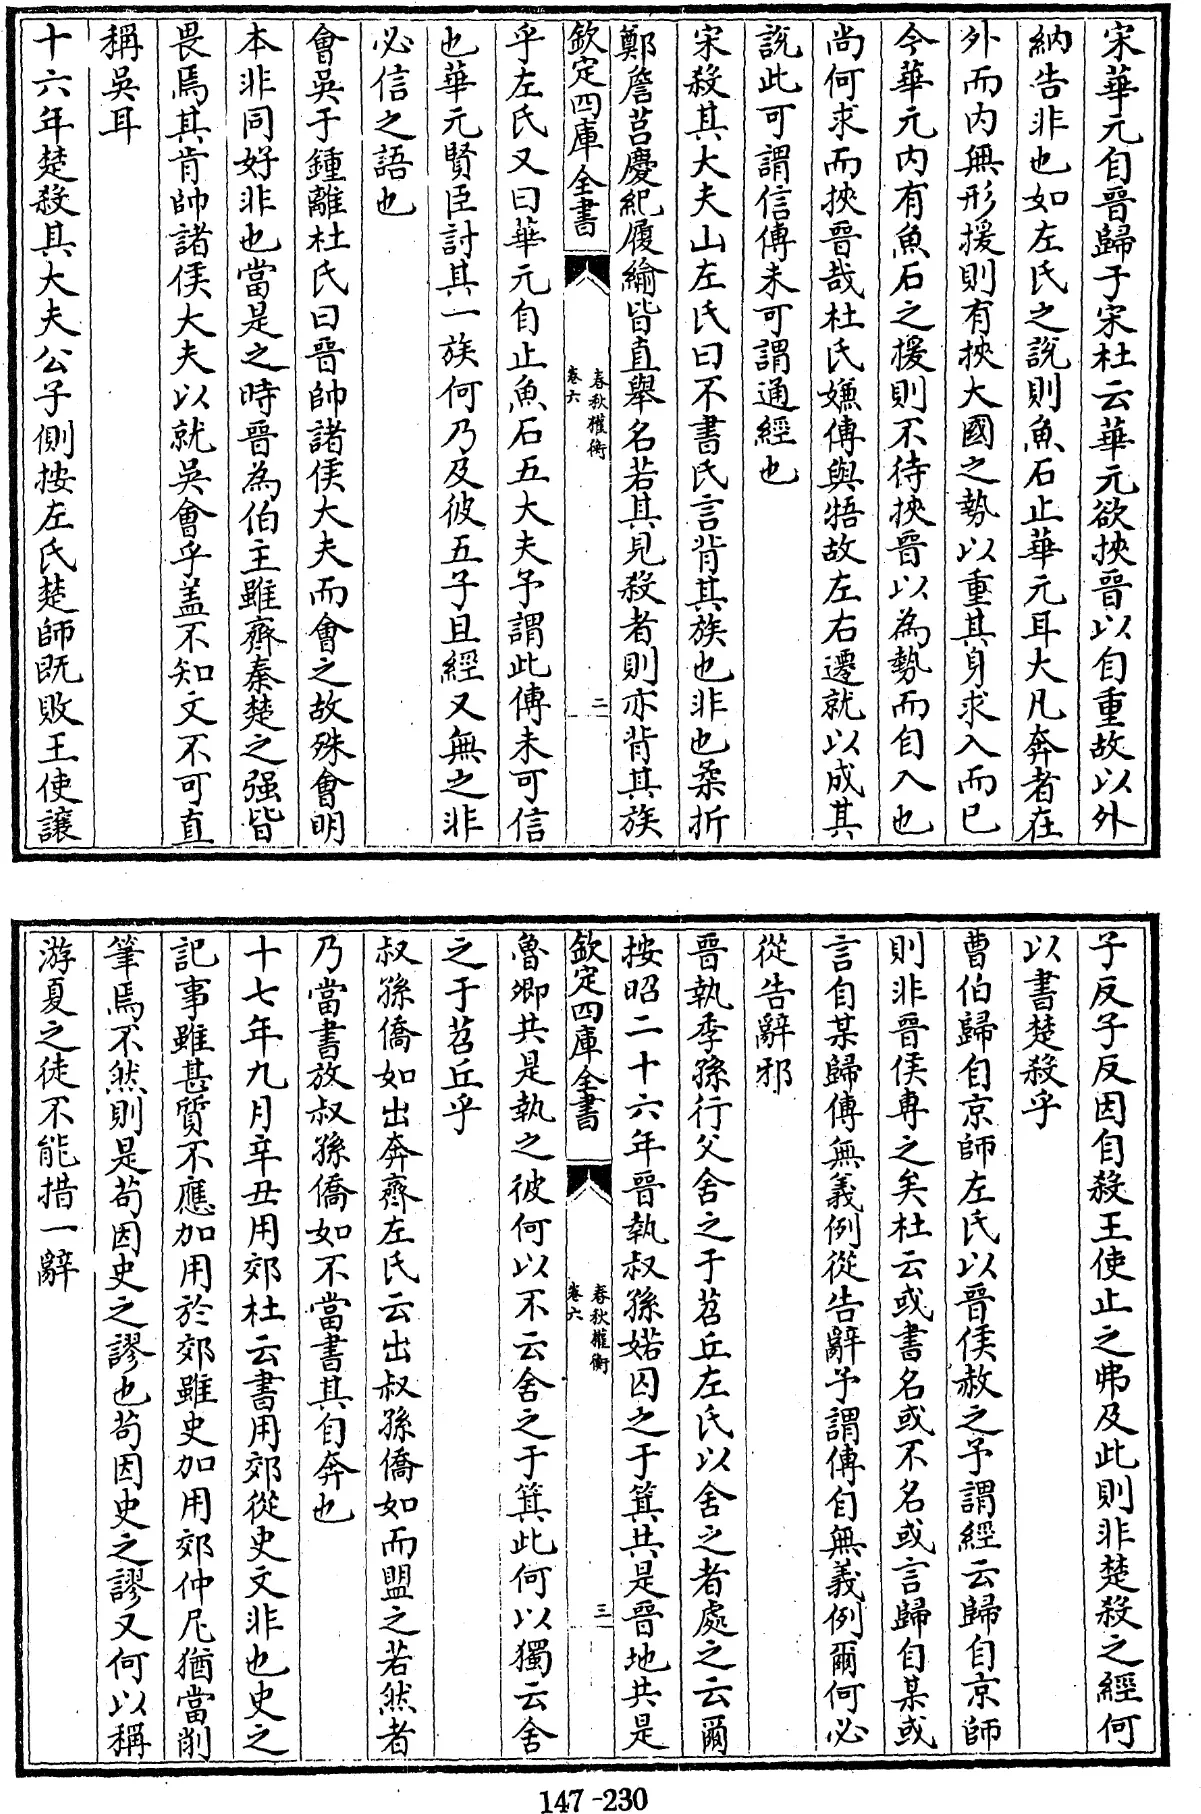 宋華元自晉歸于宋杜云華元欲挾晉以自重故以外
納告非也如左氏之說則魚石止華元耳大凡奔者在
外而内無形援則有挾大國之勢以重其身求入而已
今華元内有魚石之援則不待挾晉以為勢而自入也
尚何求而挾晉哉杜氏嫌傳與牾故左右遷就以成其
說此可謂信傳未可謂通經也
宋殺其大夫山左氏曰不書氏言背其族也非也桑折
鄭詹莒慶紀履緰皆直舉名若其見殺者則亦背其族
欽定四庫全書
春秋權衡
卷六
二
乎左氏又曰華元自止魚石五大夫予謂此傳未可信
也華元賢臣討其一族何乃及彼五子且經又無之非
必信之語也
會吳于鍾離杜氏曰晉帥諸侯大夫而會之故殊會明
本非同好非也當是之時晉為伯主雖齊秦楚之强皆
畏焉其肯帥諸侯大夫以就吳會乎盖不知文不可直
稱吳耳
十六年楚殺其大夫公子側按左氏楚師既敗王使讓
子反子反因自殺王使止之弗及此則非楚殺之經何
以書楚殺乎
曹伯歸自京師左氏以晉侯赦之予謂經云歸自京師
則非晉侯專之矣杜云或書名或不名或言歸自某或
言自某歸傳無義例從告辭予謂傳自無義例爾何必
從告辭邪
晉執季孫行父舍之于苕丘左氏以舍之者處之云爾
按昭二十六年晉執叔孫婼囚之于箕共是晉地共是
欽定四庫全書
春秋權衡
卷六
三
魯卿共是執之彼何以不云舍之于箕此何以獨云舍
之于苕丘乎
叔孫僑如出奔齊左氏云出叔孫僑如而盟之若然者
乃當書放叔孫僑如不當書其自奔也
十七年九月辛丑用郊杜云書用郊從史文非也史之
記事雖甚質不應加用於郊雖史加用郊仲尼猶當削
筆焉不然則是苟因史之謬也苟因史之謬又何以稱
游夏之徒不能措一辭
147-230